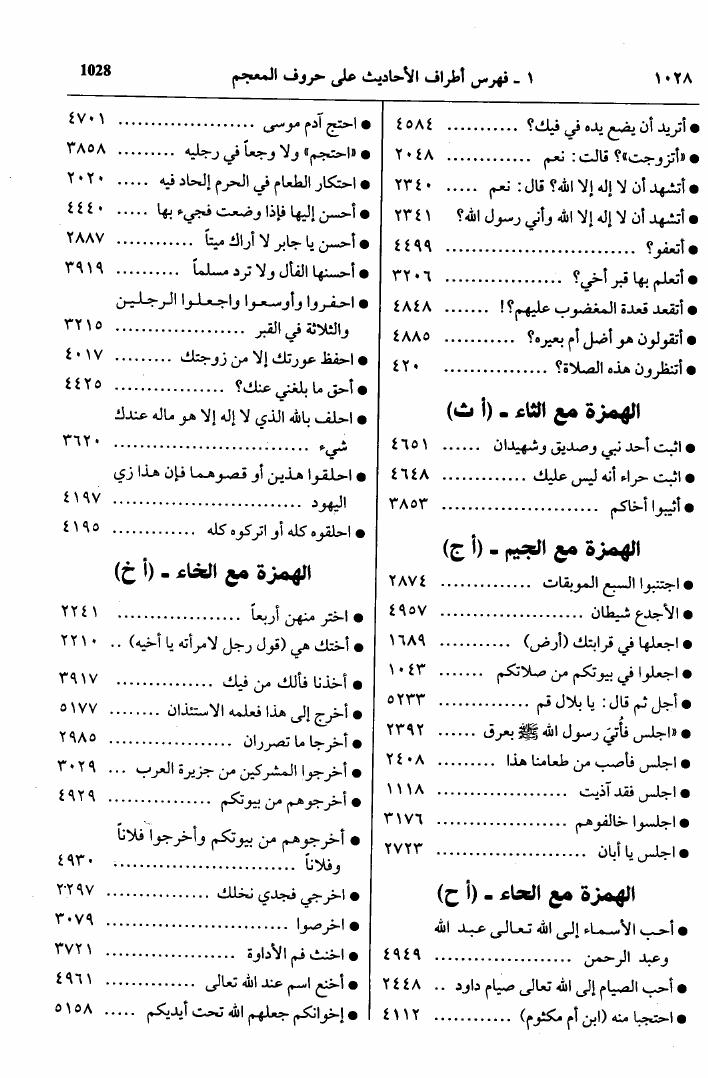 ١٠٢٨
١ - فهرس أطراف الأحاديث على حروف المعجم
1028
● أتريد أن يضع يده في فيك؟ ........... ٤٥٨٤
● «أتزوجت»؟ قالت: نعم ............. ٢٠٤٨
● أتشهد أن لا إله إلا الله؟ قال: نعم ..... ٢٣٤٠
● أتشهد أن لا إله إلا الله وأني رسول الله؟ ٢٣٤١
● أتعفو؟ ............................. ٤٤٩٩
● أتعلم بها قبر أخي؟ .................. ٣٢٠٦
● أتقعد قعدة المغضوب عليهم؟! ....... ٤٨٤٨
● أتقولون هو أضل أم بعيره؟ ........... ٤٨٨٥
● أتنظرون هذه الصلاة؟ ................ ٤٢٠
الهمزة مع الثاء - (أ ث)
● اثبت أحد نبي وصديق وشهيدان ...... ٤٦٥١
● اثبت حراء أنه ليس عليك ............. ٤٦٤٨
● أثيبوا أخاكم ........................ ٣٨٥٣
الهمزة مع الجيم - (أ ج)
● اجتنبوا السبع الموبقات .............. ٢٨٧٤
● الأجدع شيطان ...................... ٤٩٥٧
● اجعلها في قرابتك (أرض) ........... ١٦٨٩
● اجعلوا في بيوتكم من صلاتكم ....... ١٠٤٣
● أجل ثم قال: يا بلال قم .............. ٥٢٣٣
● «اجلس فأُتيَ رسول الله ﷺ بعرق ...... ٢٣٩٢
● اجلس فأصب من طعامنا هذا ......... ٢٤٠٨
● اجلس فقد آذيت .................... ١١١٨
● اجلسوا خالفوهم .................... ٣١٧٦
● اجلس يا أبان ....................... ٢٧٢٣
الهمزة مع الحاء - (أ ح)
● أحب الأسماء إلى الله تعالى عبد الله
وعبد الرحمن ..................... ٤٩٤٩
● أحب الصيام إلى الله تعالى صيام داود .. ٢٤٤٨
● احتجبا منه (ابن أم مكثوم) ............ ٤١١٢
● احتج آدم موسى ..................... ٤٧٠١
● «احتجم» ولا وجعاً في رجليه ......... ٣٨٥٨
● احتكار الطعام في الحرم إلحاد فيه ..... ٢٠٢٠
● أحسن إليها فإذا وضعت فجيء بها ..... ٤٤٤٠
● أحسن يا جابر لا أراك ميتاً ............ ٢٨٨٧
● أحسنها الفأل ولا ترد مسلماً .......... ٣٩١٩
● احفروا وأوسعوا واجعلوا الرجلين
والثلاثة في القبر .................... ٣٢١٥
● احفظ عورتك إلا من زوجتك ......... ٤٠١٧
● أحق ما بلغني عنك؟ ................. ٤٤٢٥
● احلف بالله الذي لا إله إلا هو ماله عندك
شيء .............................. ٣٦٢٠
● احلقوا هذين أو قصوهما فإن هذا زي
اليهود ............................. ٤١٩٧
● احلقوه كله أو اتركوه كله ............. ٤١٩٥
الهمزة مع الخاء - (أ خ)
● اختر منهن أربعاً ................... ٢٢٤١
● أختك هي (قول رجل لامرأته يا أخيه) .. ٢٢١٠
● أخذنا فألك من فيك ............... ٣٩١٧
● أخرج إلى هذا فعلمه الاستئذان ........ ٥١٧٧
● أخرجا ما تصرران ................... ٢٩٨٥
● أخرجوا المشركين من جزيرة العرب ... ٣٠٢٩
● أخرجوهم من بيوتكم ................ ٤٩٢٩
● أخرجوهم من بيوتكم وأخرجوا فلاناً
وفلاناً ............................. ٤٩٣٠
● اخرجي فجدي نخلك ................ ٢٢٩٧
● اخرصوا ............................ ٣٠٧٩
● اخنث فم الأداوة .................... ٣٧٢١
● أخنع اسم عند الله تعالى .............. ٤٩٦١
● إخوانكم جعلهم الله تحت أيديكم ..... ٥١٥٨